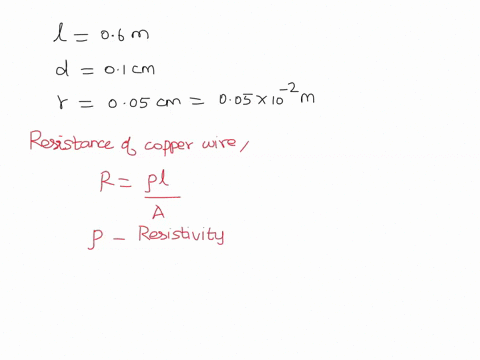 l = 0.6 m
d = 0.1 cm
r = 0.05 cm = 0.05 × 10⁻² m
Resistance of copper wire,
R = ρl / A
ρ – Resistivity